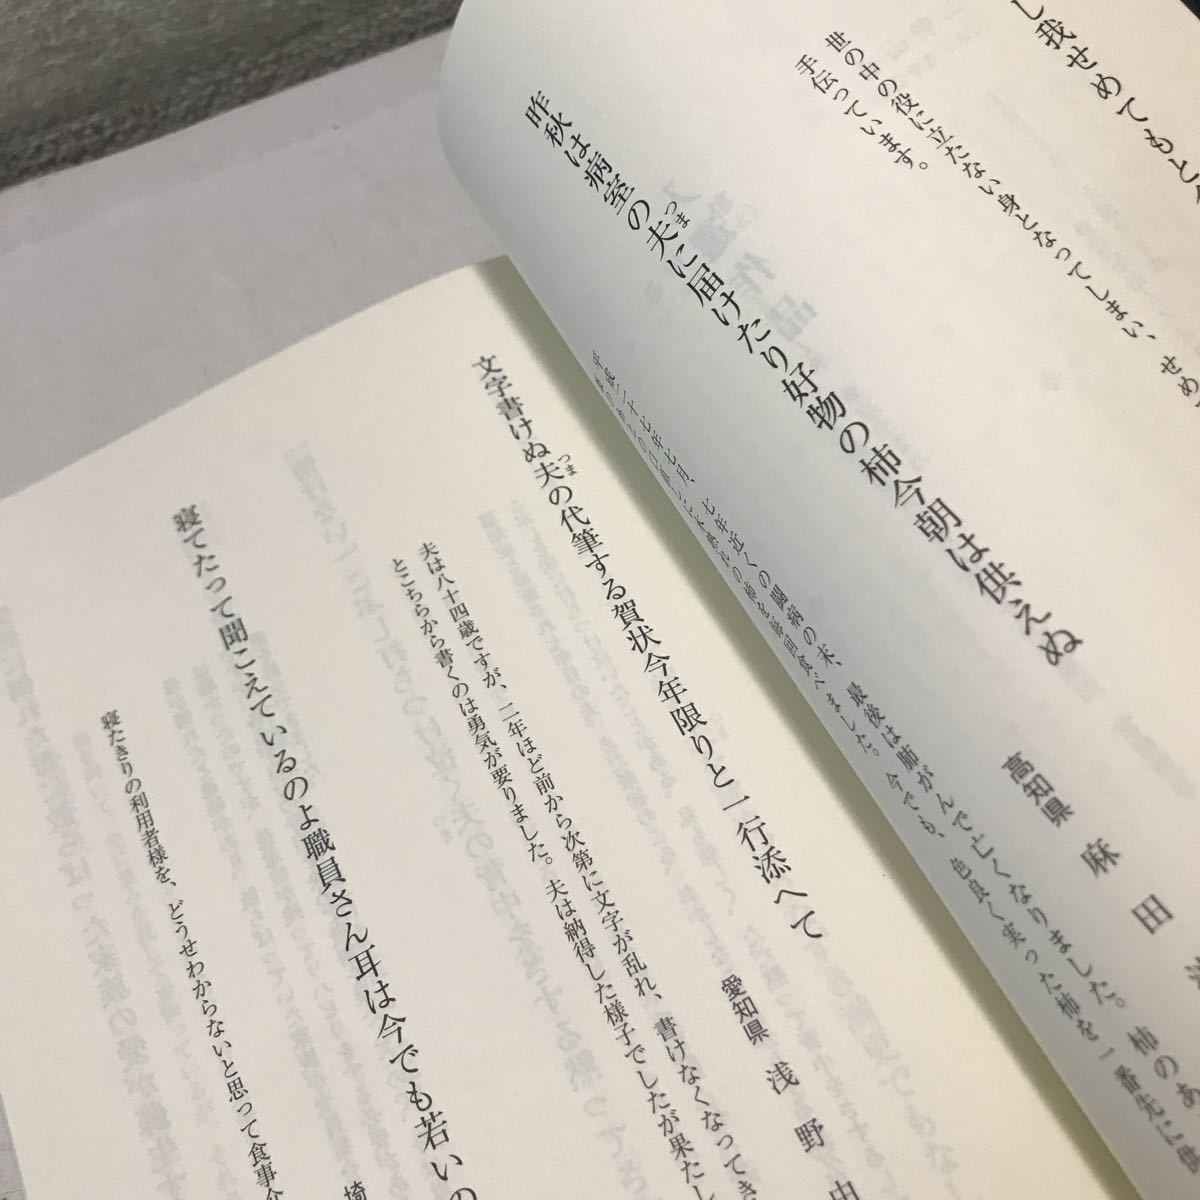 し我せめてもと
世の中の役に立たない身となってしまい、せめて
手伝っています。
昨秋は病室の夫に届けたり好物の柿今朝は供えぬ
つま
高知県 麻田
平成二十七年七月、七年近くの闘病の末、最後は肺がんで亡くなりました。柿のあ
毎回食べました。今でも、色良く実った柿を一番先に供
文字書けぬ夫の代筆する賀状今年限りと一行添へて
つま
愛知県 浅野由
夫は八十四歳ですが、二年ほど前から次第に文字が乱れ、書けなくなってき
とこちらから書くのは勇気が要りました。夫は納得した様子でしたが果たし
寝てたって聞こえているのよ職員さん耳は今でも若いの
埼
寝たきりの利用者様を、どうせわからないと思って食事介